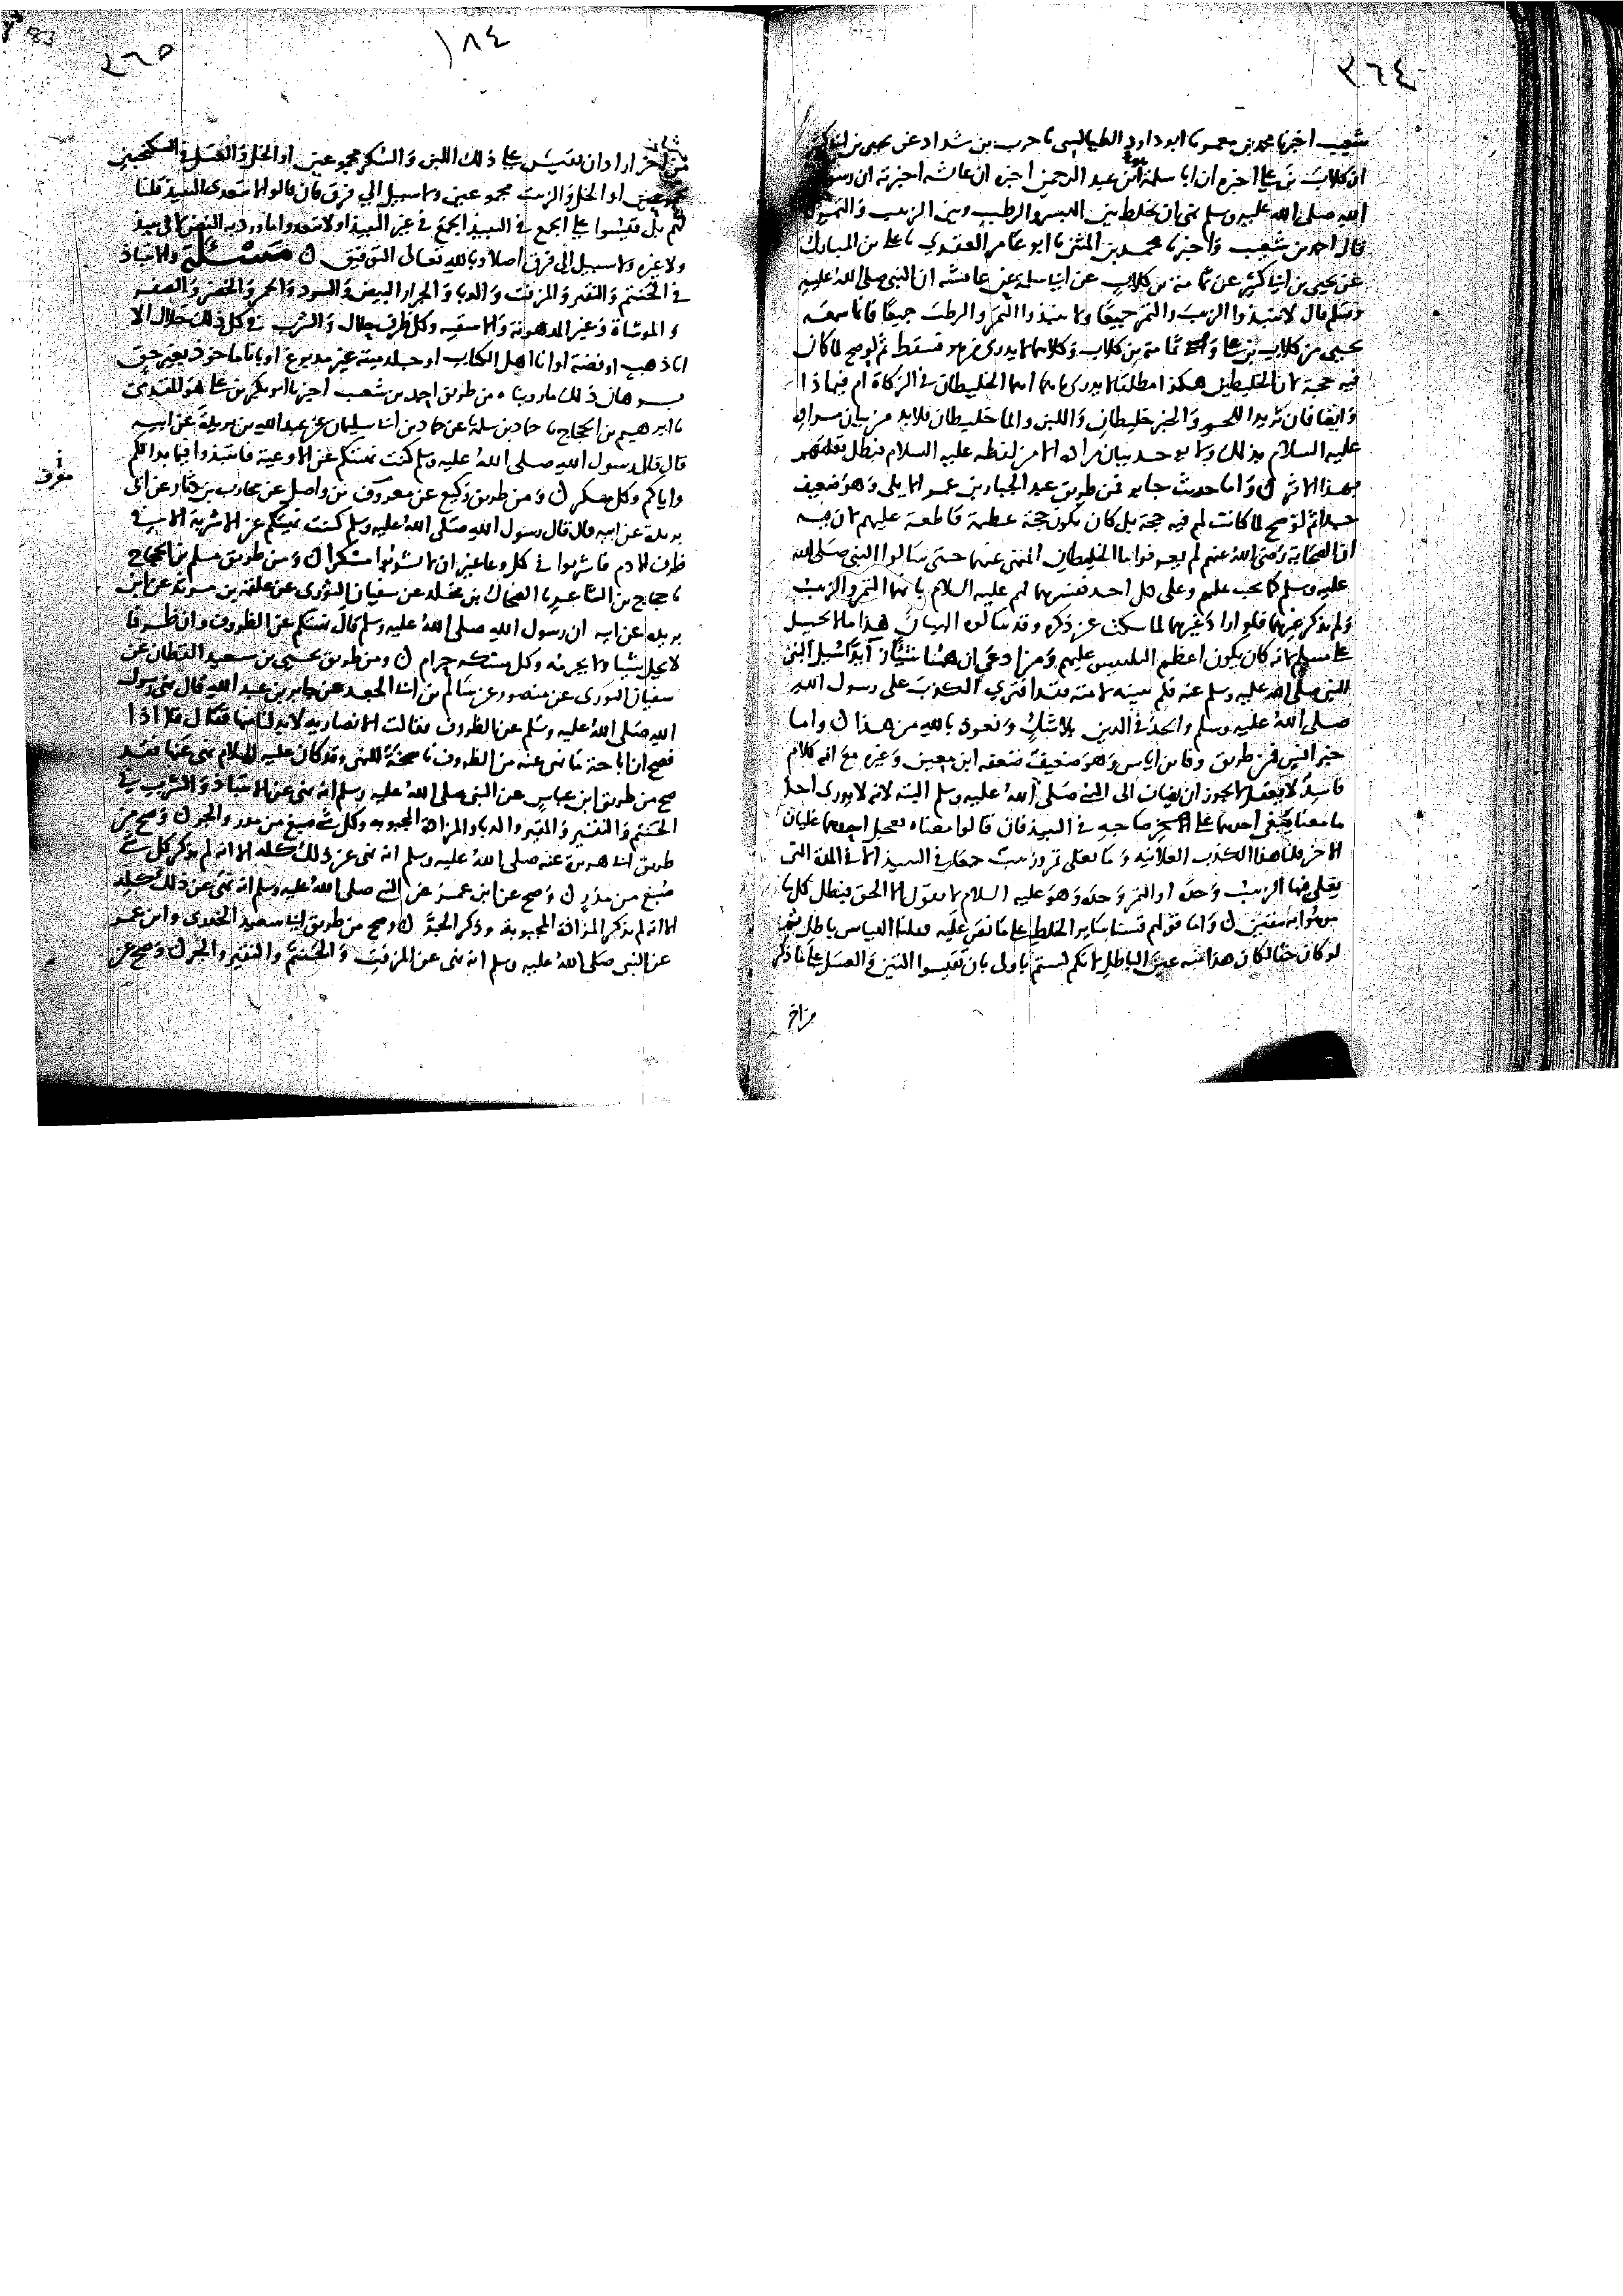 ٢٦٤
شعيب اخبرنا محمد بن معمر نا ابو داود الطيالسي نا حرب بن شداد عن يحيى بن ابي كثير
ان كلاب بن علي اخبره ان ابا سلمة بن عبد الرحمن اخبره ان عائشة اخبرته ان رسول
الله صلى الله عليه وسلم نهى ان يخلط بين البسر والرطب وبين الزبيب والتمر
قال احمد بن شعيب واخبرنا محمد بن المثنى نا ابو عامر العقدي نا علي بن المبارك
عن يحيى بن ابي كثير عن ثمامة بن كلاب عن ابي سلمة عن عائشة ان النبي صلى الله عليه
وسلم قال لا تنبذوا الزبيب والتمر جميعا ولا تنبذوا التمر والرطب جميعا فانما سمعه
يحيى من كلاب بن علي وثمامة بن كلاب وكلاهما لا يدرى من هو فسقط ثم لو صح لما كان
فيه حجة لان الخليطين هكذا مطلقا لا يدرى ما هما اهما الخليطان في الزكاة ام فيما ذا
وايضا فان ثريد اللحم والخبز خليطان واللبن والماء خليطان فلابد من بيان مراده
عليه السلام بذلك ولا يوجد بيان مراده الا من لفظه عليه السلام فبطل تعلقهم
بهذا الاثر ن واما حديث جابر فمن طريق عبد الجبار بن عمر الايلي وهو ضعيف
جدا ثم لو صح لما كانت لهم فيه حجة بل كان يكون حجة عظيمة قاطعة عليهم لان فيه
ان الصحابة رضي الله عنهم لم يعرفوا ما الخليطان المنهي عنهما حتى سالوا النبي صلى الله
عليه وسلم كما يجب عليهم وعلى كل احد ففسرهما لهم عليه السلام بانهما التمر والزبيب
ولم يذكر غيرهما فلو اراد غيرهما لما سكت عن ذكره وقد سالوه البيان هذا ما لا يحيل
على مسلم لانه كان يكون اعظم التلبيس عليهم ومن ادعى ان ههنا شيئا زائدا سئل النبي
النبي صلى الله عليه وسلم عنه فلم يبينه لامته فقد افترى الكذب على رسول الله
صلى الله عليه وسلم والحد في الدين بلا شك ونعوذ بالله من هذا ن واما
خبر انس فمن طريق وقا بن اياس وهو ضعيف ضعفه ابن معين وغيره مع انه كلام
فاسد لا يعقل لا يجوز ان يضاف الى النبي صلى الله عليه وسلم البته لانه لا يدرى احد
ما معنا يبغي احدهما على صاحبه في النبيذ فان قالوا معناه تعجيل احدهما غليان
الاخر قلنا هذا الكذب العلانية وما تغلى تمر وزبيب جمعا في النبيذ الا في المدة التي
يغلى فيها الزبيب وحده او التمر وحده وهو عليه السلام لا يقول الا الحق فبطل كل ما
موهوا به بيقين ن واما قولهم قسنا سائر الخلط على ما نص عليه فقلنا القياس باطل ثم
لو كان حقا لكان هذا منه عين الباطل لانكم لستم باولى بان تقيسوا التين والعسل على ما ذكر
من اخر
83
١٨٤
٢٦٥
من اخر اراد ان يقيس على ذلك اللبن والسكر مجموعين او الخل والعسل في السكنجبين
مجموعين او الخل والزيت مجموعين ولا سبيل الى فرق فان قالوا لا نتعدى النبيذ قلنا
لكم بل قيسوا على الجمع في النبيذ الجمع في غير النبيذ او لا تتعدوا ما ورد به النص الى نبيذ
ولا غيره ولا سبيل الى فرق اصلا وبالله تعالى التوفيق ن مسئلة والانتباذ
في الحنتم والنقير والمزفت والدبا والجرار البيض والسود والحمر والخضر والصفر
والموشاة وغير المدهونة والاسقية وكل ظرف حلال والشرب في كل ذلك حلال الا
انا ذهب او فضة او انا اهل الكتاب او جلد ميتة غير مدبوغ او انا ماخوذ بغير حق
برهان ذلك ما روينا من طريق احمد بن شعيب اخبرنا ابو بكر بن علي هو المقدمي
نا ابراهيم بن الحجاج نا حماد بن سلمة عن حماد بن ابي سليمان عن عبد الله بن بريدة عن ابيه
قال قال رسول الله صلى الله عليه وسلم كنت نهيتكم عن الاوعية فانتبذوا فيما بدا لكم
واياكم وكل مسكر ن ومن طريق وكيع عن معروف بن واصل عن محارب بن دثار عن ابن
معرف
بريدة عن ابيه قال قال رسول الله صلى الله عليه وسلم كنت نهيتكم عن الاشربة الا في
ظروف الادم فاشربوا في كل وعا غير ان لا تشربوا مسكرا ن ومن طريق مسلم بن الحجاج
نا حجاج بن الشاعر نا الضحاك بن مخلد عن سفيان الثوري عن علقمة بن مرثد عن ابن
بريدة عن ابيه ان رسول الله صلى الله عليه وسلم قال نهيتكم عن الظروف وان ظرفا
لا يحل شيا ولا يحرمه وكل مسكر حرام ن ومن طريق يحيى بن سعيد القطان عن
سفيان الثوري عن منصور عن سالم بن ابي الجعد عن جابر بن عبد الله قال نهى رسول
الله صلى الله عليه وسلم عن الظروف فقالت الانصار انه لابد لنا منها فقال فلا اذا
فصح ان اباحة ما نهى عنه من الظروف ناسخة للنهي وقد كان عليه السلام نهى عنها فقد
صح من طريق ابن عباس عن النبي صلى الله عليه وسلم انه نهى عن الانتباذ والشرب في
الحنتم والنقير والمقير والدبا والمزادة المجبوبة وكل شي صنع من مدر والجر ن وصح من
طريق ابي هريرة عنه صلى الله عليه وسلم انه نهى عن ذلك كله الا انه لم يذكر كل شي
صنع من مدر ن وصح عن ابن عمر عن النبي صلى الله عليه وسلم انه نهى عن ذلك كله
الا انه لم يذكر المزادة المجبوبة وذكر الجر ن وصح من طريق ابي سعيد الخدري وابن عمر
عن النبي صلى الله عليه وسلم انه نهى عن المزفت والحنتم والنقير والجر ن وصح عن